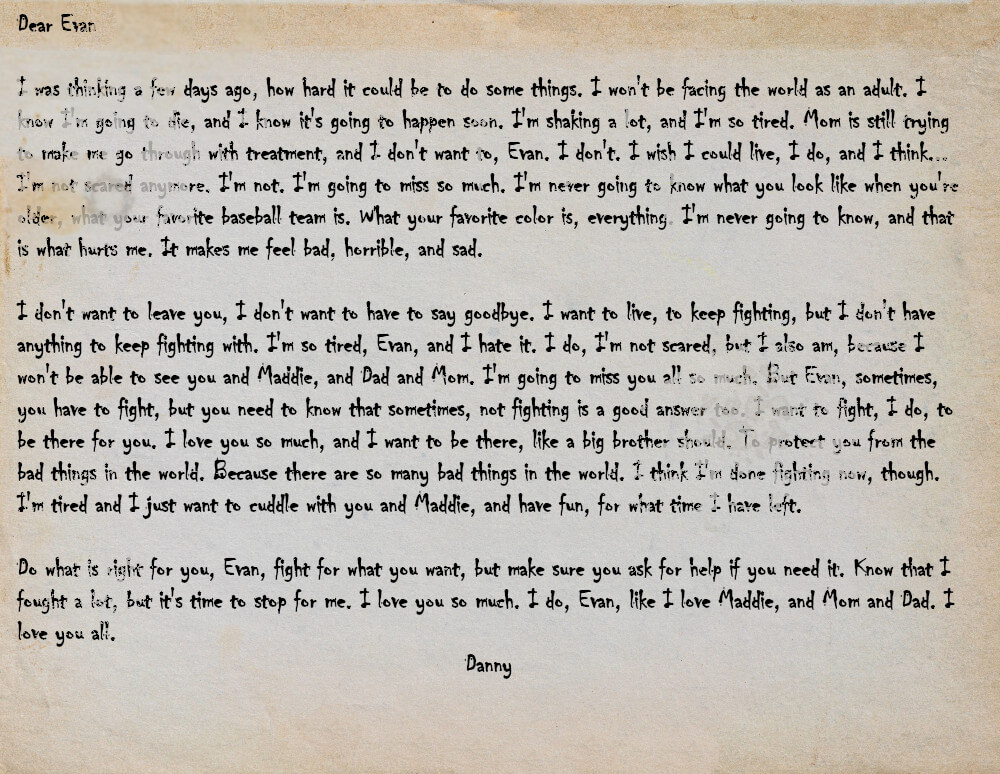 Dear Evan
I was thinking a few days ago, how hard it could be to do some things. I won't be facing the world as an adult. I
know I'm going to die, and I know it's going to happen soon. I'm shaking a lot, and I'm so tired. Mom is still trying
to make me go through with treatment, and I don't want to, Evan. I don't. I wish I could live, I do, and I think...
I'm not scared anymore. I'm not. I'm going to miss so much. I'm never going to know what you look like when you're
older, what your favorite baseball team is. What your favorite color is, everything. I'm never going to know, and that
is what hurts me. It makes me feel bad, horrible, and sad.
I don't want to leave you, I don't want to have to say goodbye. I want to live, to keep fighting, but I don't have
anything to keep fighting with. I'm so tired, Evan, and I hate it. I do, I'm not scared, but I also am, because I
won't be able to see you and Maddie, and Dad and Mom. I'm going to miss you all so much. But Evan, sometimes,
you have to fight, but you need to know that sometimes, not fighting is a good answer too. I want to fight, I do, to
be there for you. I love you so much, and I want to be there, like a big brother should. To protect you from the
bad things in the world. Because there are so many bad things in the world. I think I'm done fighting now, though.
I'm tired and I just want to cuddle with you and Maddie, and have fun, for what time I have left.
Do what is right for you, Evan, fight for what you want, but make sure you ask for help if you need it. Know that I
fought a lot, but it's time to stop for me. I love you so much. I do, Evan, like I love Maddie, and Mom and Dad. I
love you all.
Danny